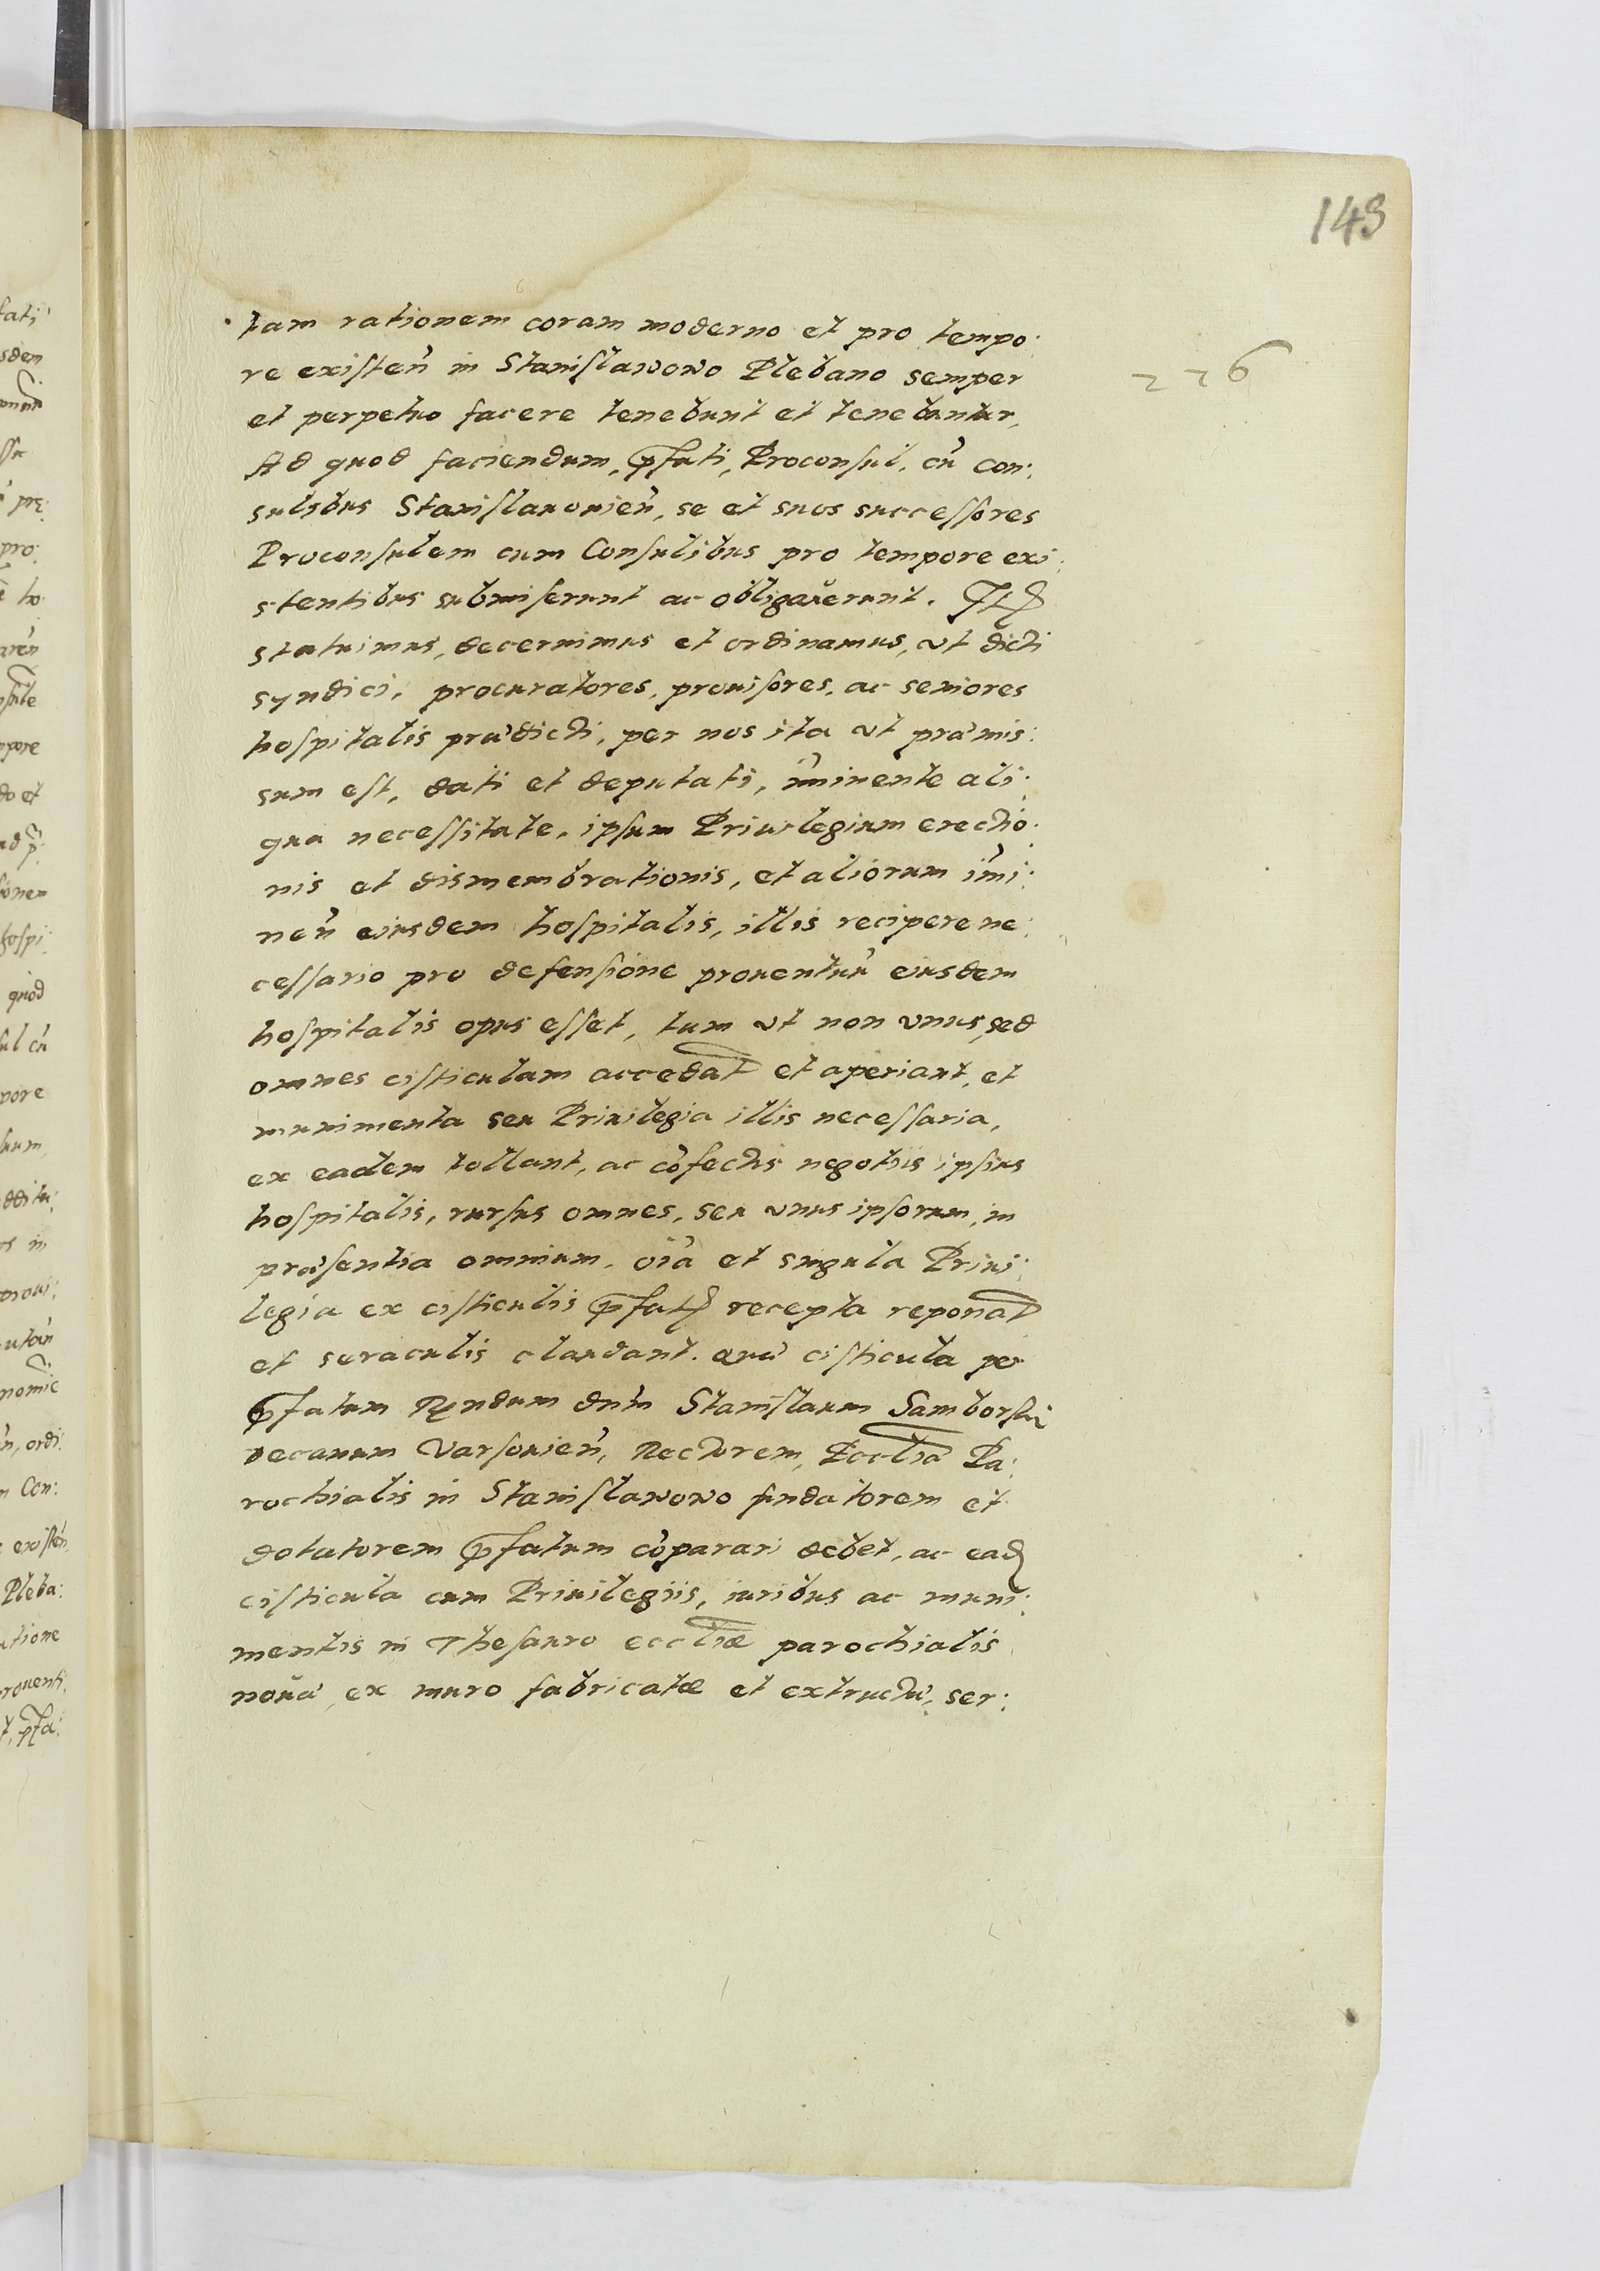 143
226
tam rationem coram moderno et pro tempo:
re existeñ in Stanislawowo Plebano semper
et perpetuo facere tenebunt et tenebuntur,
Ad quod faciendum, p̄fati, Proconsul, cū con:
sulibus Stanislauouień, se et suos successores
Proconsulem cum Consulibus pro tempore exi:
stentibus submiserunt ac obligauerunt.
statuimus, decernimus et ordinamus, vt dicti
syndici, procuratores, prouisores, ac seniores
hospitalis prædicti, per nos ita vt præmis:
sum est, dati et deputati, im̄inente ali:
qua necessitate, ipsum Priuilegium erectio:
nis et dismembrationis, et aliorum im̄i:
neñ eiusdem hospitalis, illis recipere ne:
cessario pro defensione prouentuū eiusdem
hospitalis opus esset, tum vt non vnus, sed
omnes cisticulam accedāt et aperiant, et
munimenta seu Priuilegia illis necessaria,
ex eadem tollant, ac cōfectis negotiis ipsius
hospitalis, rursus omnes, seu vnus ipsorum, in
præsentia omnium, oīa et singula Priui:
legia ex cisticulis p̄fat recepta reponāt
et seraculis claudant. quæ cisticula per
p̄fatum Rn̄dum dnm̄ Stanislaum Samborski
decanum Varsouień, Rectorem, Ecclīæ Pa:
rochialis in Stanislawowo fundatorem et
dotatorem p̄fatum cōparari debet, ac ead
cisticula cum Priuilegiis, iuribus ac muni:
mentis in Thesauro ecclīæ parochialis
nouæ, ex muro fabricatæ et extructæ, ser: